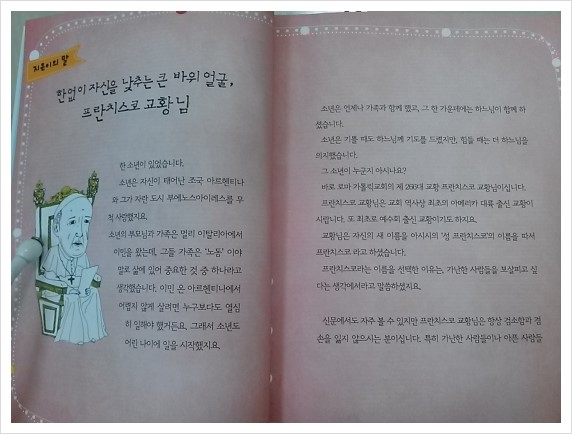 지은이의 말
한없이 자신을 낮추는 큰 바위 얼굴,
프란치스코 교황님
한 소년이 있었습니다.
소년은 자신이 태어난 조국 아르헨티나
와 그가 자란 도시 부에노스아이레스를 무
척 사랑했지요.
소년의 부모님과 가족은 멀리 이탈리아에서
이민을 왔는데, 그들 가족은 '노동' 이야
말로 삶에 있어 중요한 것 중 하나라고
생각했습니다. 이민 온 아르헨티나에서
어렵지 않게 살려면 누구보다도 열심
히 일해야 했거든요. 그래서 소년도
어린 나이에 일을 시작했지요.
소년은 언제나 가족과 함께 했고, 그 한 가운데에는 하느님이 함께 하
셨습니다.
소년은 기쁠 때도 하느님께 기도를 드렸지만, 힘들 때는 더 하느님을
의지했습니다.
그 소년이 누군지 아시나요?
바로 로마 가톨릭교회의 제 266대 교황 프란치스코 교황님이십니다.
프란치스코 교황님은 교회 역사상 최초의 아메리카 대륙 출신 교황이
시랍니다. 또 최초로 예수회 출신 교황이기도 하지요.
교황님은 자신의 새 이름을 아시시의 '성 프란치스코'의 이름을 따서
프란치스코 라고 하셨습니다.
프란치스코라는 이름을 선택한 이유는, 가난한 사람들을 보살피고 싶
다는 생각에서라고 말씀하셨지요.
신문에서도 자주 볼 수 있지만 프란치스코 교황님은 항상 검소함과 겸
손을 잃지 않으시는 분이십니다. 특히 가난한 사람들이나 아픈 사람들